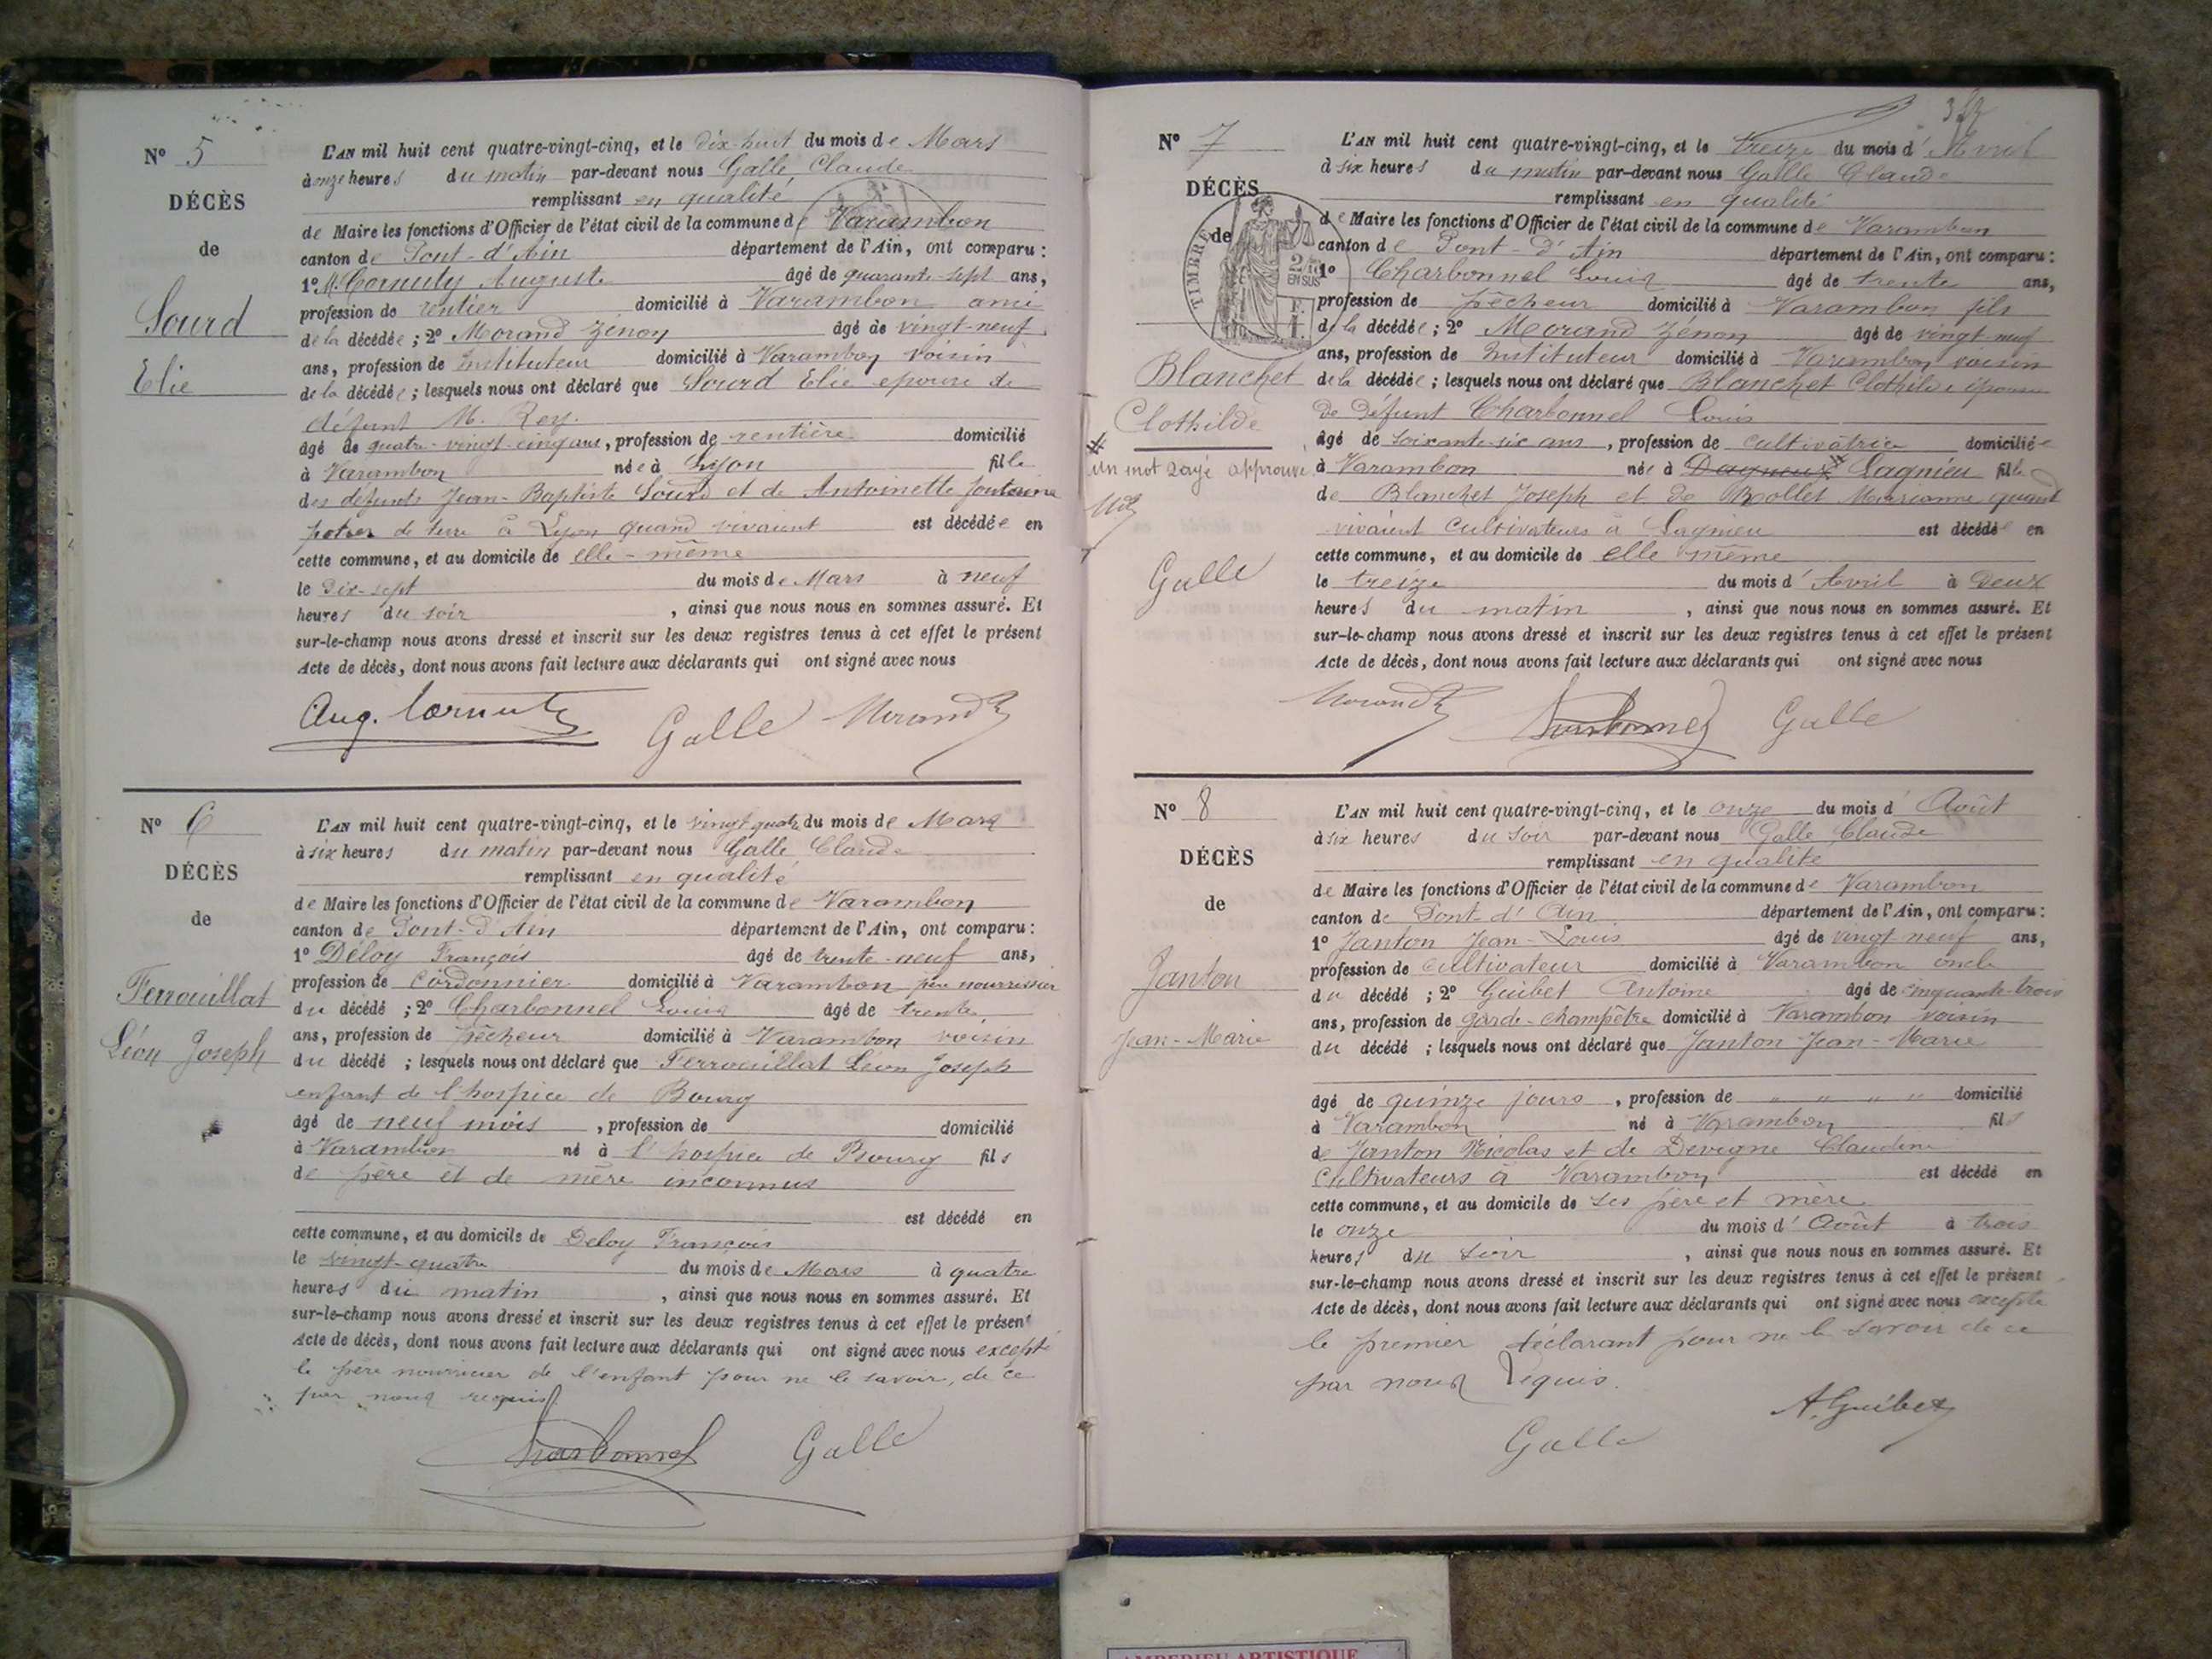 N° 5
DÉCÈS
de
Sourd
Elie
L'AN mil huit cent quatre-vingt-cinq, et le dix-huit du mois de Mars
à onze heures du matin par-devant nous Galle Claude
remplissant en qualité
de Maire les fonctions d'Officier de l'état civil de la commune de Varambon
canton de Pont-d'Ain département de l'Ain, ont comparu :
1° M. Cornuty Auguste âgé de quarante-sept ans,
profession de rentier domicilié à Varambon ami
de la décédée ; 2° Morand Zénon âgé de vingt-neuf
ans, profession de Instituteur domicilié à Varambon voisin
de la décédée ; lesquels nous ont déclaré que Sourd Elie épouse de
défunt M. Rey.
âgé de quatre-vingt-cinq ans, profession de rentière domicilié
à Varambon née à Lyon fille
des défunts Jean-Baptiste Sourd et de Antoinette
de terre à Lyon quand vivaient est décédée en
cette commune, et au domicile de elle-même
le dix-sept du mois de Mars à neuf
heures du soir , ainsi que nous nous en sommes assuré. Et
sur-le-champ nous avons dressé et inscrit sur les deux registres tenus à cet effet le présent
Acte de décès, dont nous avons fait lecture aux déclarants qui ont signé avec nous
Aug. Cornuty Galle Morand Z
N° 6
DÉCÈS
de
Ferrouillat
Léon Joseph
L'AN mil huit cent quatre-vingt-cinq, et le vingt quatre du mois de Mars
à six heures du matin par-devant nous Galle Claude
remplissant en qualité
de Maire les fonctions d'Officier de l'état civil de la commune de Varambon
canton de Pont-d'Ain département de l'Ain, ont comparu :
1° Déloy François âgé de trente-neuf ans,
profession de cordonnier domicilié à Varambon père nourricier
du décédé ; 2° Charbonnel Louis âgé de trente
ans, profession de pêcheur domicilié à Varambon voisin
du décédé ; lesquels nous ont déclaré que Ferrouillat Léon Joseph
enfant de l'hospice de Bourg
âgé de neuf mois , profession de domicilié
à Varambon né à l'hospice de Bourg fils
de père et de mère inconnus
est décédé en
cette commune, et au domicile de Deloy François
le vingt-quatre du mois de Mars à quatre
heures du matin , ainsi que nous nous en sommes assuré. Et
sur-le-champ nous avons dressé et inscrit sur les deux registres tenus à cet effet le présent
Acte de décès, dont nous avons fait lecture aux déclarants qui ont signé avec nous excepté
le père nourricier de l'enfant pour ne le savoir, de ce
par nous requis
Charbonnel Galle
N° 7
DÉCÈS
de
TIMBRE
2/10
EN SUS
Blanchet
Clothilde
un mot rayé approuvé
Galle
L'AN mil huit cent quatre-vingt-cinq, et le treize du mois d'Avril
à six heures du matin par-devant nous Galle Claude
remplissant en qualité
de Maire les fonctions d'Officier de l'état civil de la commune de Varambon
canton de Pont-d'Ain département de l'Ain, ont comparu :
1° Charbonnel Louis âgé de trente ans,
profession de pêcheur domicilié à Varambon fils
de la décédée ; 2° Morand Zénon âgé de vingt neuf
ans, profession de Instituteur domicilié à Varambon voisin
de la décédée ; lesquels nous ont déclaré que Blanchet Clothilde épouse
de défunt Charbonnel Louis
âgé de soixante-six ans , profession de cultivatrice domiciliée
à Varambon née à Dagneux Lagnieu fille
de Blanchet Joseph et de Bollet Marianne quand
vivaient cultivateurs à Lagnieu est décédée en
cette commune, et au domicile de elle même
le treize du mois d'Avril à Deux
heures du matin , ainsi que nous nous en sommes assuré. Et
sur-le-champ nous avons dressé et inscrit sur les deux registres tenus à cet effet le présent
Acte de décès, dont nous avons fait lecture aux déclarants qui ont signé avec nous
Morand Z Charbonnel Galle
N° 8
DÉCÈS
de
Janton
Jean-Marie
L'AN mil huit cent quatre-vingt-cinq, et le onze du mois d'Août
à six heures du soir par-devant nous Galle Claude
remplissant en qualité
de Maire les fonctions d'Officier de l'état civil de la commune de Varambon
canton de Pont-d'Ain département de l'Ain, ont comparu :
1° Janton Jean-Louis âgé de vingt-neuf ans,
profession de cultivateur domicilié à Varambon oncle
du décédé ; 2° Guibet Antoine âgé de cinquante-trois
ans, profession de garde-champêtre domicilié à Varambon voisin
du décédé ; lesquels nous ont déclaré que Janton Jean-Marie
âgé de quinze jours , profession de " " " " domicilié
à Varambon né à Varambon fils
de Janton Nicolas et de Devigne Claudine
Cultivateurs à Varambon est décédé en
cette commune, et au domicile de ses père et mère
le onze du mois d'Août à trois
heures du soir , ainsi que nous nous en sommes assuré. Et
sur-le-champ nous avons dressé et inscrit sur les deux registres tenus à cet effet le présent
Acte de décès, dont nous avons fait lecture aux déclarants qui ont signé avec nous excepté
le premier déclarant pour ne le savoir de ce
par nous requis.
A. Guibet
Galle
AMBERIEU ARTISTIQUE